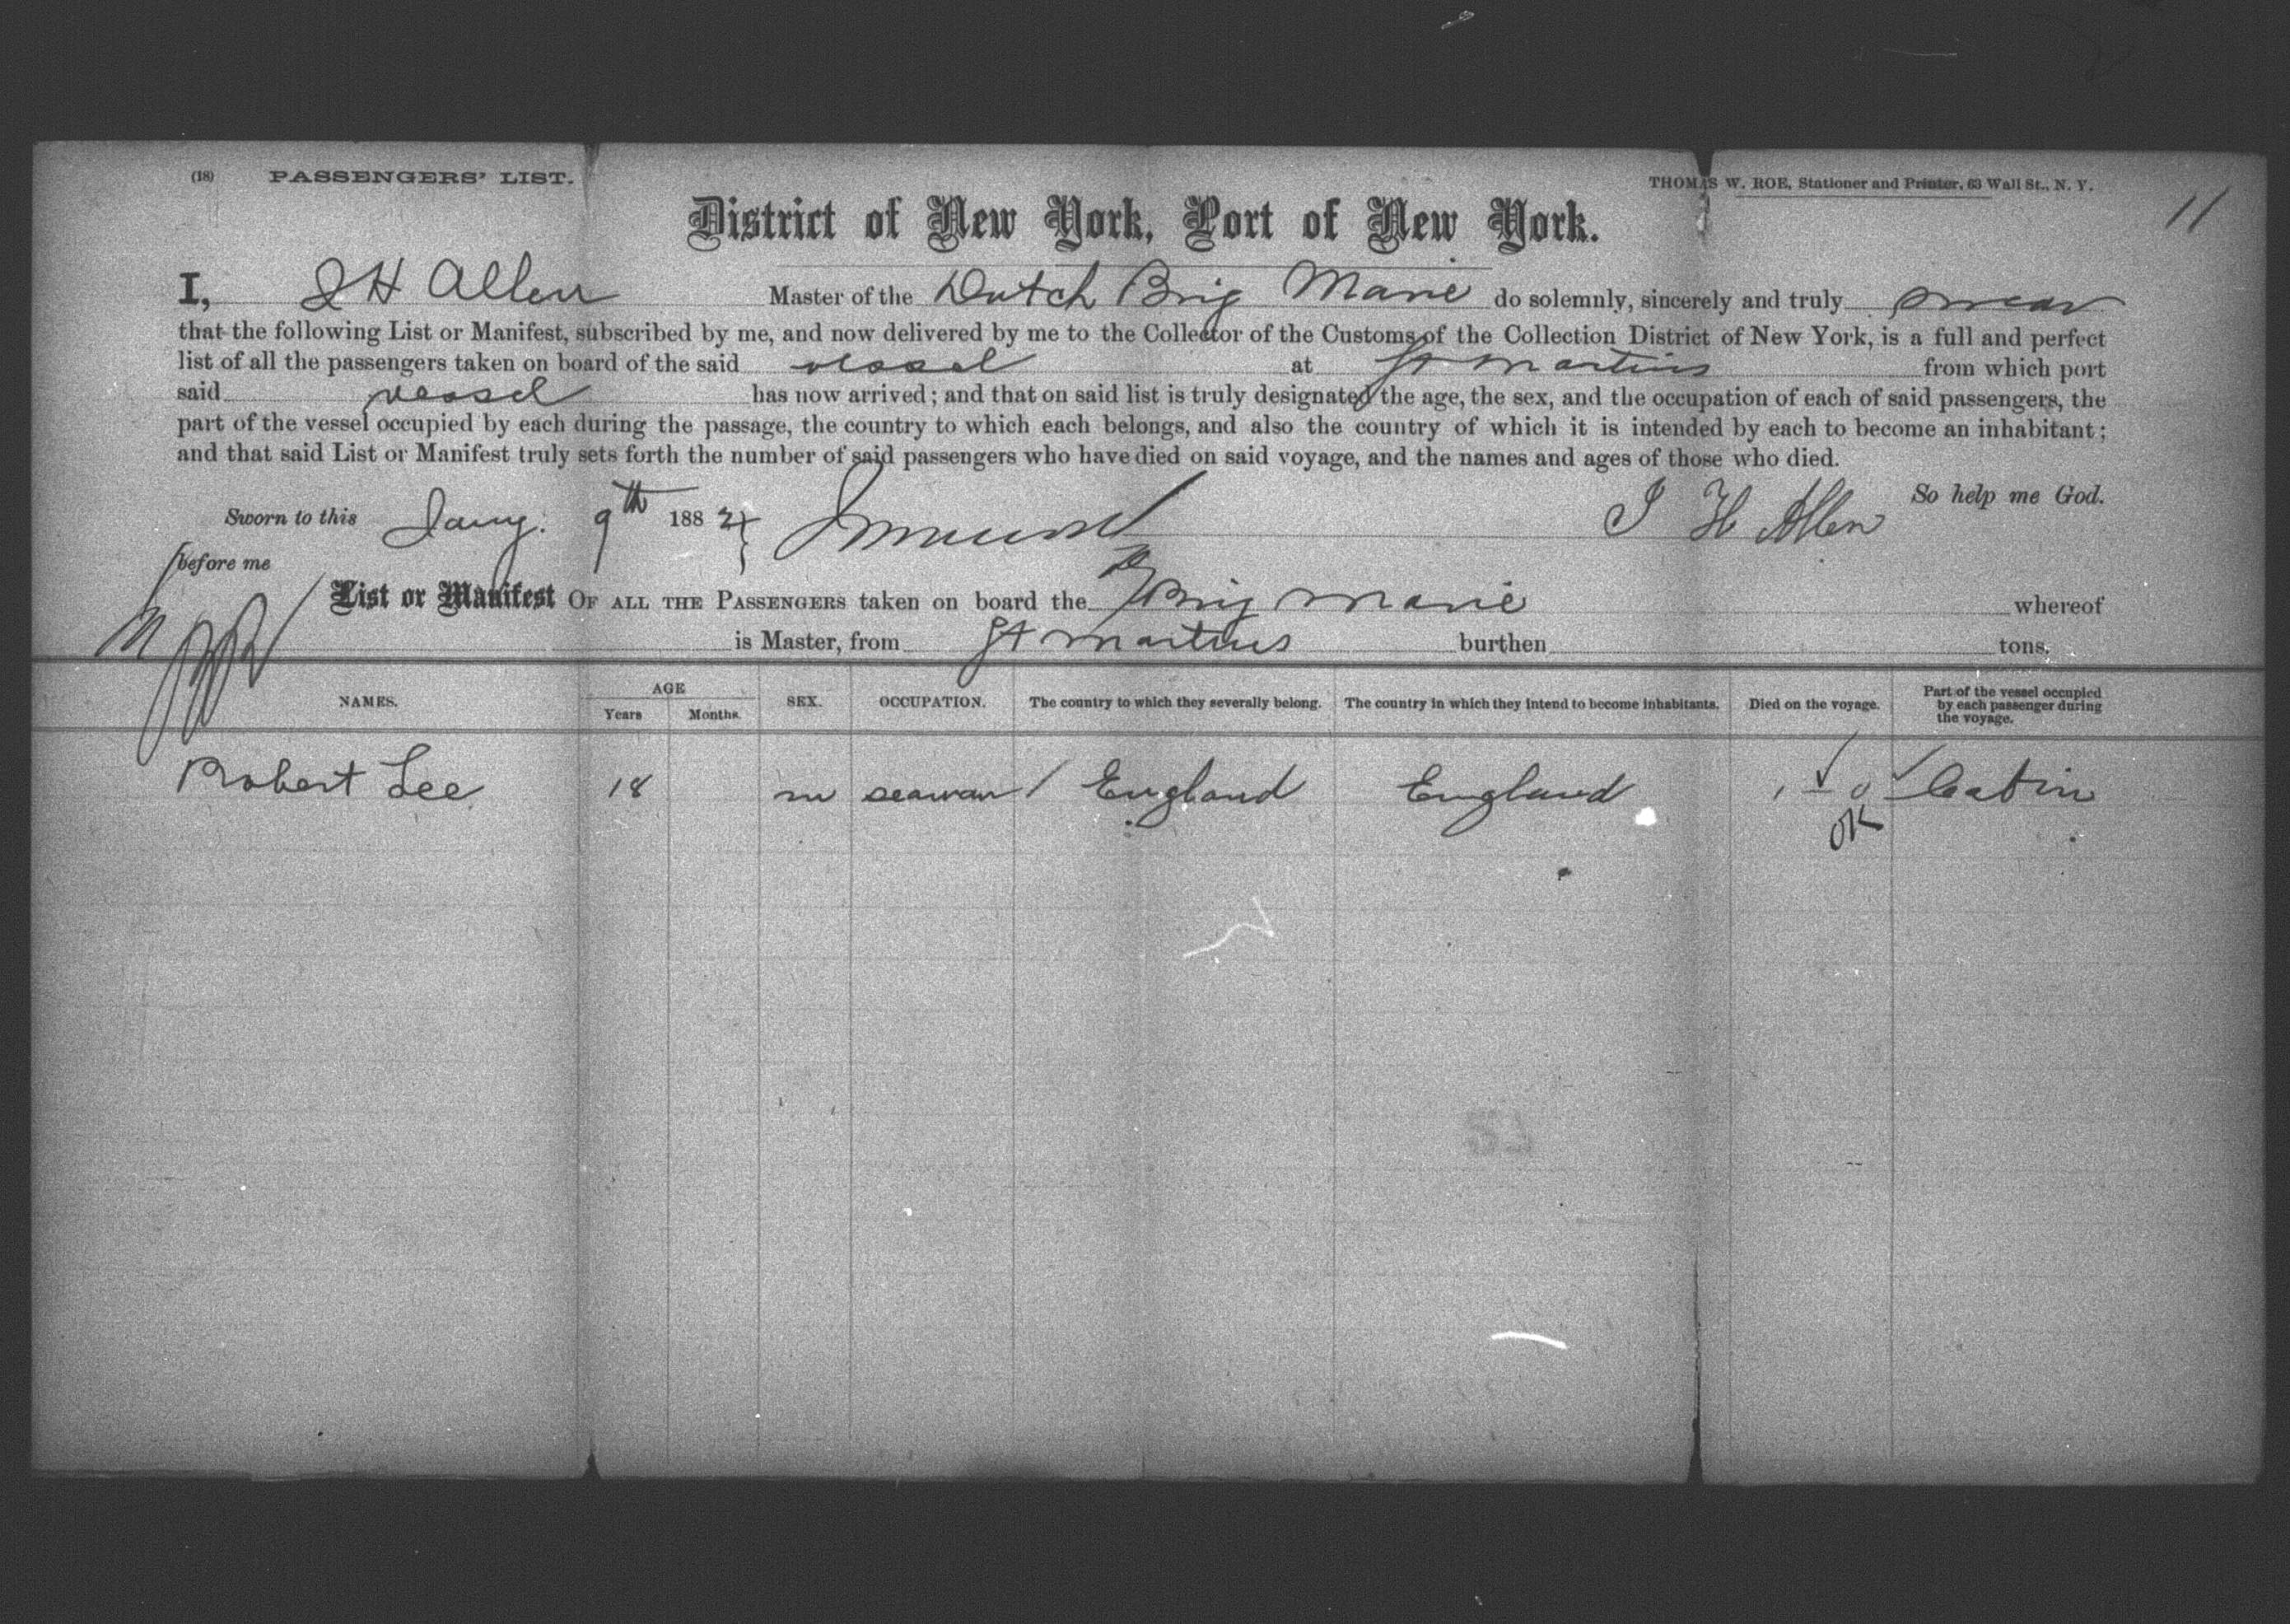 (18) PASSENGERS' LIST.
THOMAS W. ROE, Stationer and Printer, 63 Wall St., N. Y.
11
District of New York, Port of New York.
I, J H Allen Master of the Dutch Brig Marie do solemnly, sincerely and truly swear
that the following List or Manifest, subscribed by me, and now delivered by me to the Collector of the Customs of the Collection District of New York, is a full and perfect
list of all the passengers taken on board of the said vessel at St Martins from which port
said vessel has now arrived; and that on said list is truly designated the age, the sex, and the occupation of each of said passengers, the
part of the vessel occupied by each during the passage, the country to which each belongs, and also the country of which it is intended by each to become an inhabitant;
and that said List or Manifest truly sets forth the number of said passengers who have died on said voyage, and the names and ages of those who died.
So help me God.
Sworn to this Jany. 9th 188 J H Allen
before me
List or Manifest OF ALL THE PASSENGERS taken on board the Brig Marie whereof
is Master, from St Martins burthen tons.
NAMES. AGE Years Months. SEX. OCCUPATION. The country to which they severally belong. The country in which they intend to become inhabitants. Died on the voyage. Part of the vessel occupied by each passenger during the voyage.
Robert Lee 18 m seaman / England England 1 - 0 Cabin
OK